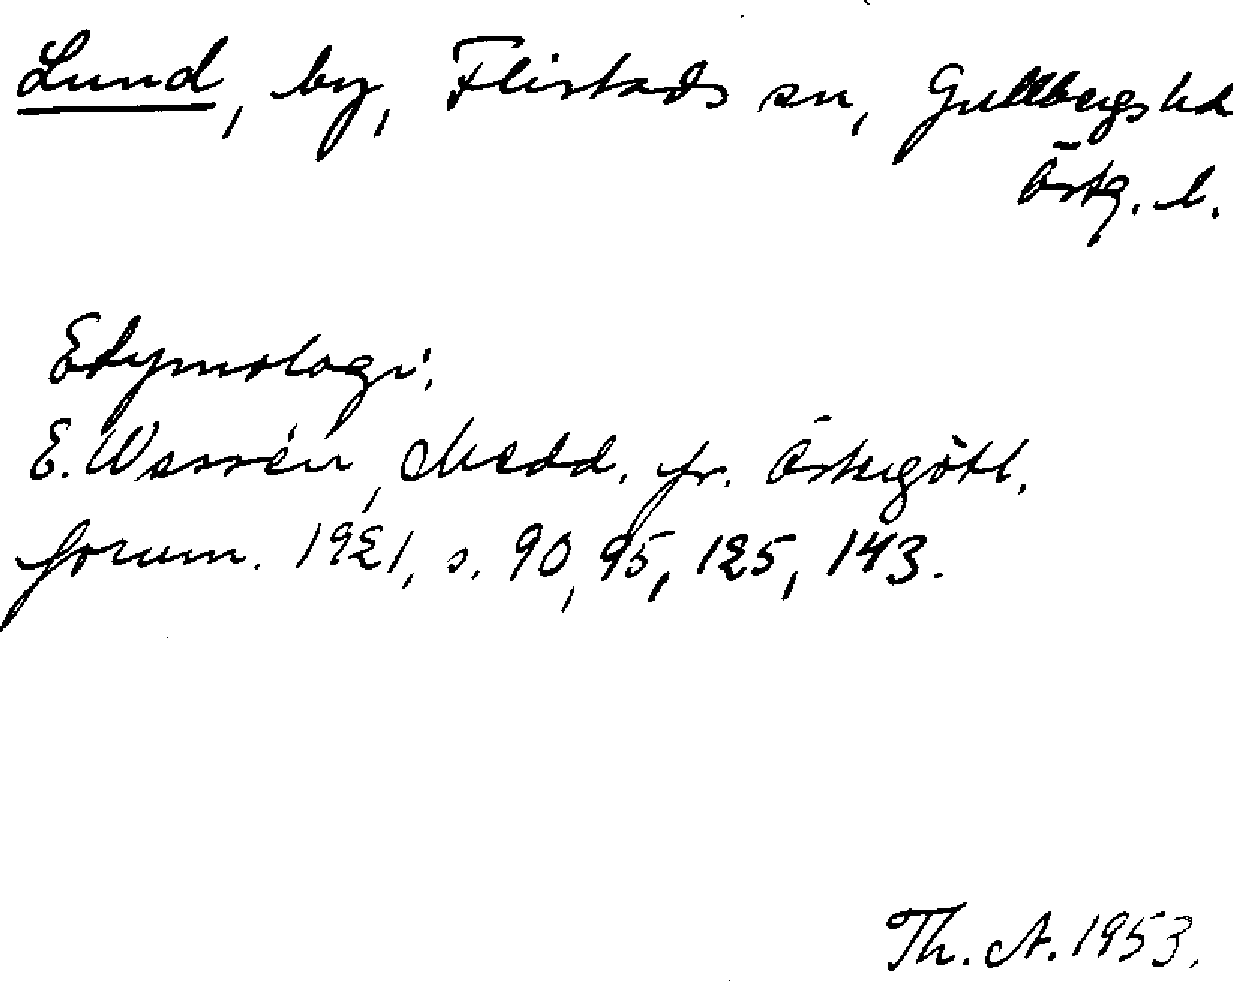 Lund, by, Flistads sn, Gullbergs hd
Östg. l.
Etymologi.
E. Wessén, Medd. fr. Östergötl.
fornm. 1921, s. 90, 95, 125, 143.
Th. A. 1953.